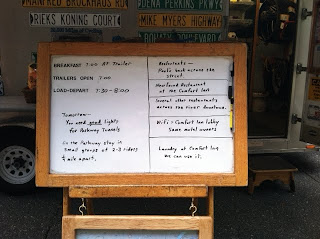 MANFRED BROCKHAUS RD
RIEKS KONING COURT
JENA PERKINS PKWY
MIKE MYERS HIGHWAY
BOULEVARD
BREAKFAST 7:00 AT Trailer
TRAILERS OPEN 7:00
LOAD-DEPART 7:30-8:00
Tomorrow-
You need good lights
for Parkway Tunnels
On the Parkway stay in
small groups of 2-3 riders
¼ mile apart.
Restaurants-
Pool's back across the
street.
Restaurant
at the Comfort Inn
Several other restaurants
across the river downtown.
Wifi = Comfort Inn lobby
Some motel guests
Laundry at Comfort Inn
we can use it.